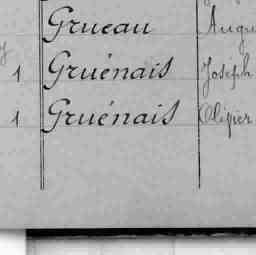 Grueau Augu
1 Gruénais Joseph
1 Gruénais Olivier